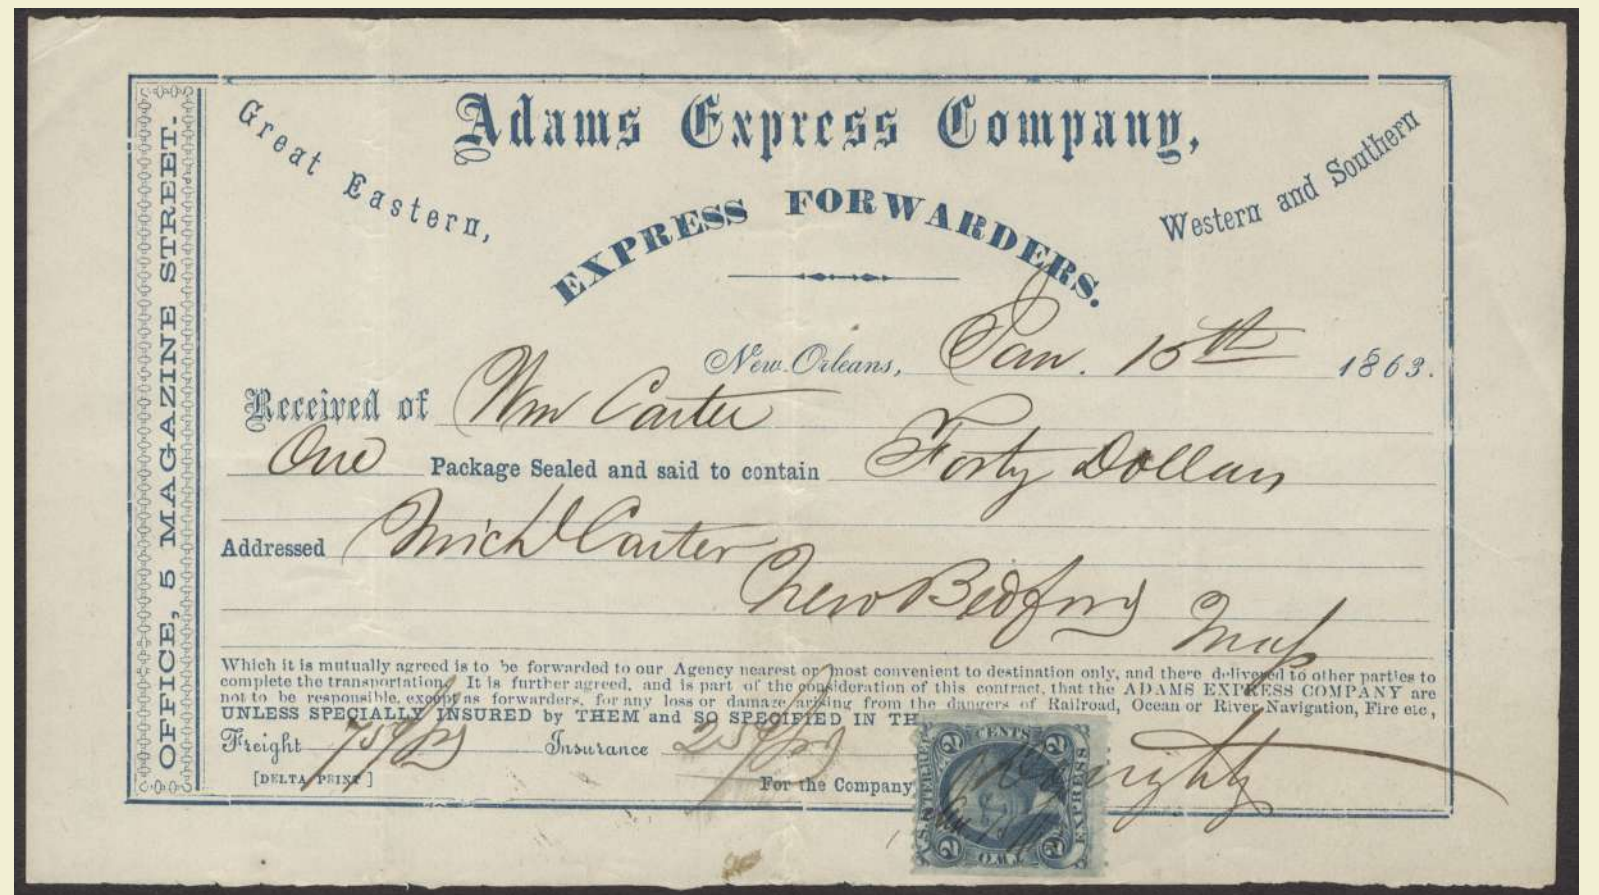 Adams Express Company,
Great Eastern,
Western and Southern
EXPRESS FORWARDERS.
OFFICE, 5 MAGAZINE STREET.
New Orleans, Jan. 15th 1863.
Received of Wm Carter
One Package Sealed and said to contain Forty Dollars
Addressed Michl Carter
New Bedford Mass
Which it is mutually agreed is to be forwarded to our Agency nearest or most convenient to destination only, and there delivered to other parties to
complete the transportation. It is further agreed, and is part of the consideration of this contract, that the ADAMS EXPRESS COMPANY are
not to be responsible, except as forwarders, for any loss or damage arising from the dangers of Railroad, Ocean or River Navigation, Fire etc,
UNLESS SPECIALLY INSURED by THEM and SO SPECIFIED IN TH
Freight 75 Insurance 25
[DELTA PRINT] For the Company
U.S. INTER. REV.
2 CENTS 2
EXPRESS
2 TWO 2